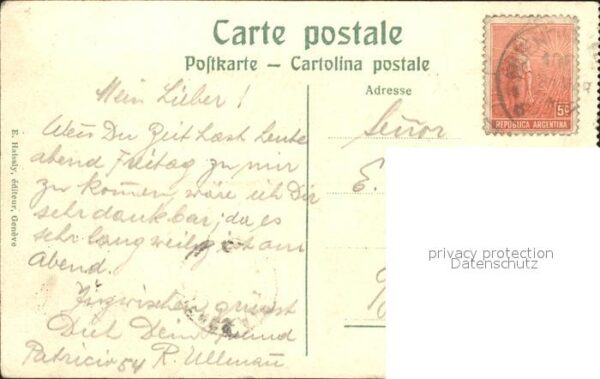 Carte postale
Postkarte — Cartolina postale
Adresse
5c
REPUBLICA ARGENTINA
Mein Lieber!
Wenn Du Zeit hast heute
abend Freitag zu mir
zu kommen, wäre ich Dir
sehr dankbar; da es
sehr langweilig ist am
Abend.
Inzwischen grüsst
Dich Dein Freund
Patricio 54 R. Ullmann
Señor
E.
E. Haissly, éditeur, Genève
privacy protection
Datenschutz